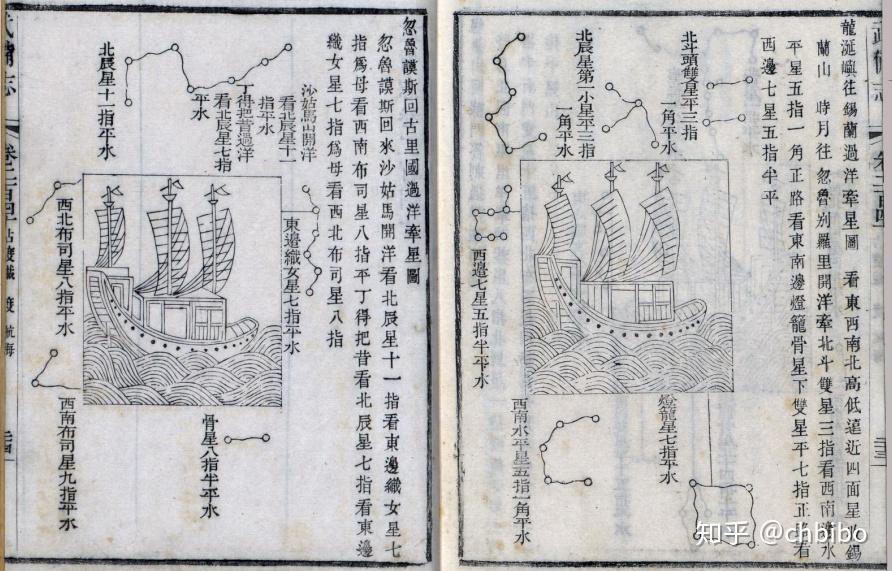 龍涎嶼往錫蘭過洋牽星圖 看東西南北高低遠近四面星收錫
蘭山 時月往忽魯別羅里開洋牽北斗雙星三指看西南邊水
平星五指一角正路看東南邊燈籠骨星下雙星平七指正路看
西邊七星五指半平
北斗頭雙星平三指
一角平水
北辰星第一小星平三指
一角平水
西邊七星五指半平水
燈籠星七指平水
西南水平星五指一角平水
忽魯謨斯回古里國過洋牽星圖
忽魯謨斯回來沙姑馬開洋看北辰星十一指看東邊織女星七
指爲母看西南布司星八指平丁得把昔看北辰星七指看東邊
織女星七指爲母看西北布司星八指
沙姑馬山開洋
看北辰星十一
指平水
丁得把昔過洋
看北辰星七指
平水
北辰星十一指平水
東邊織女星七指平水
西北布司星八指平水
骨星八指半平水
西南布司星九指平水
武備志
占度載 度 航海
知乎 @chbibo